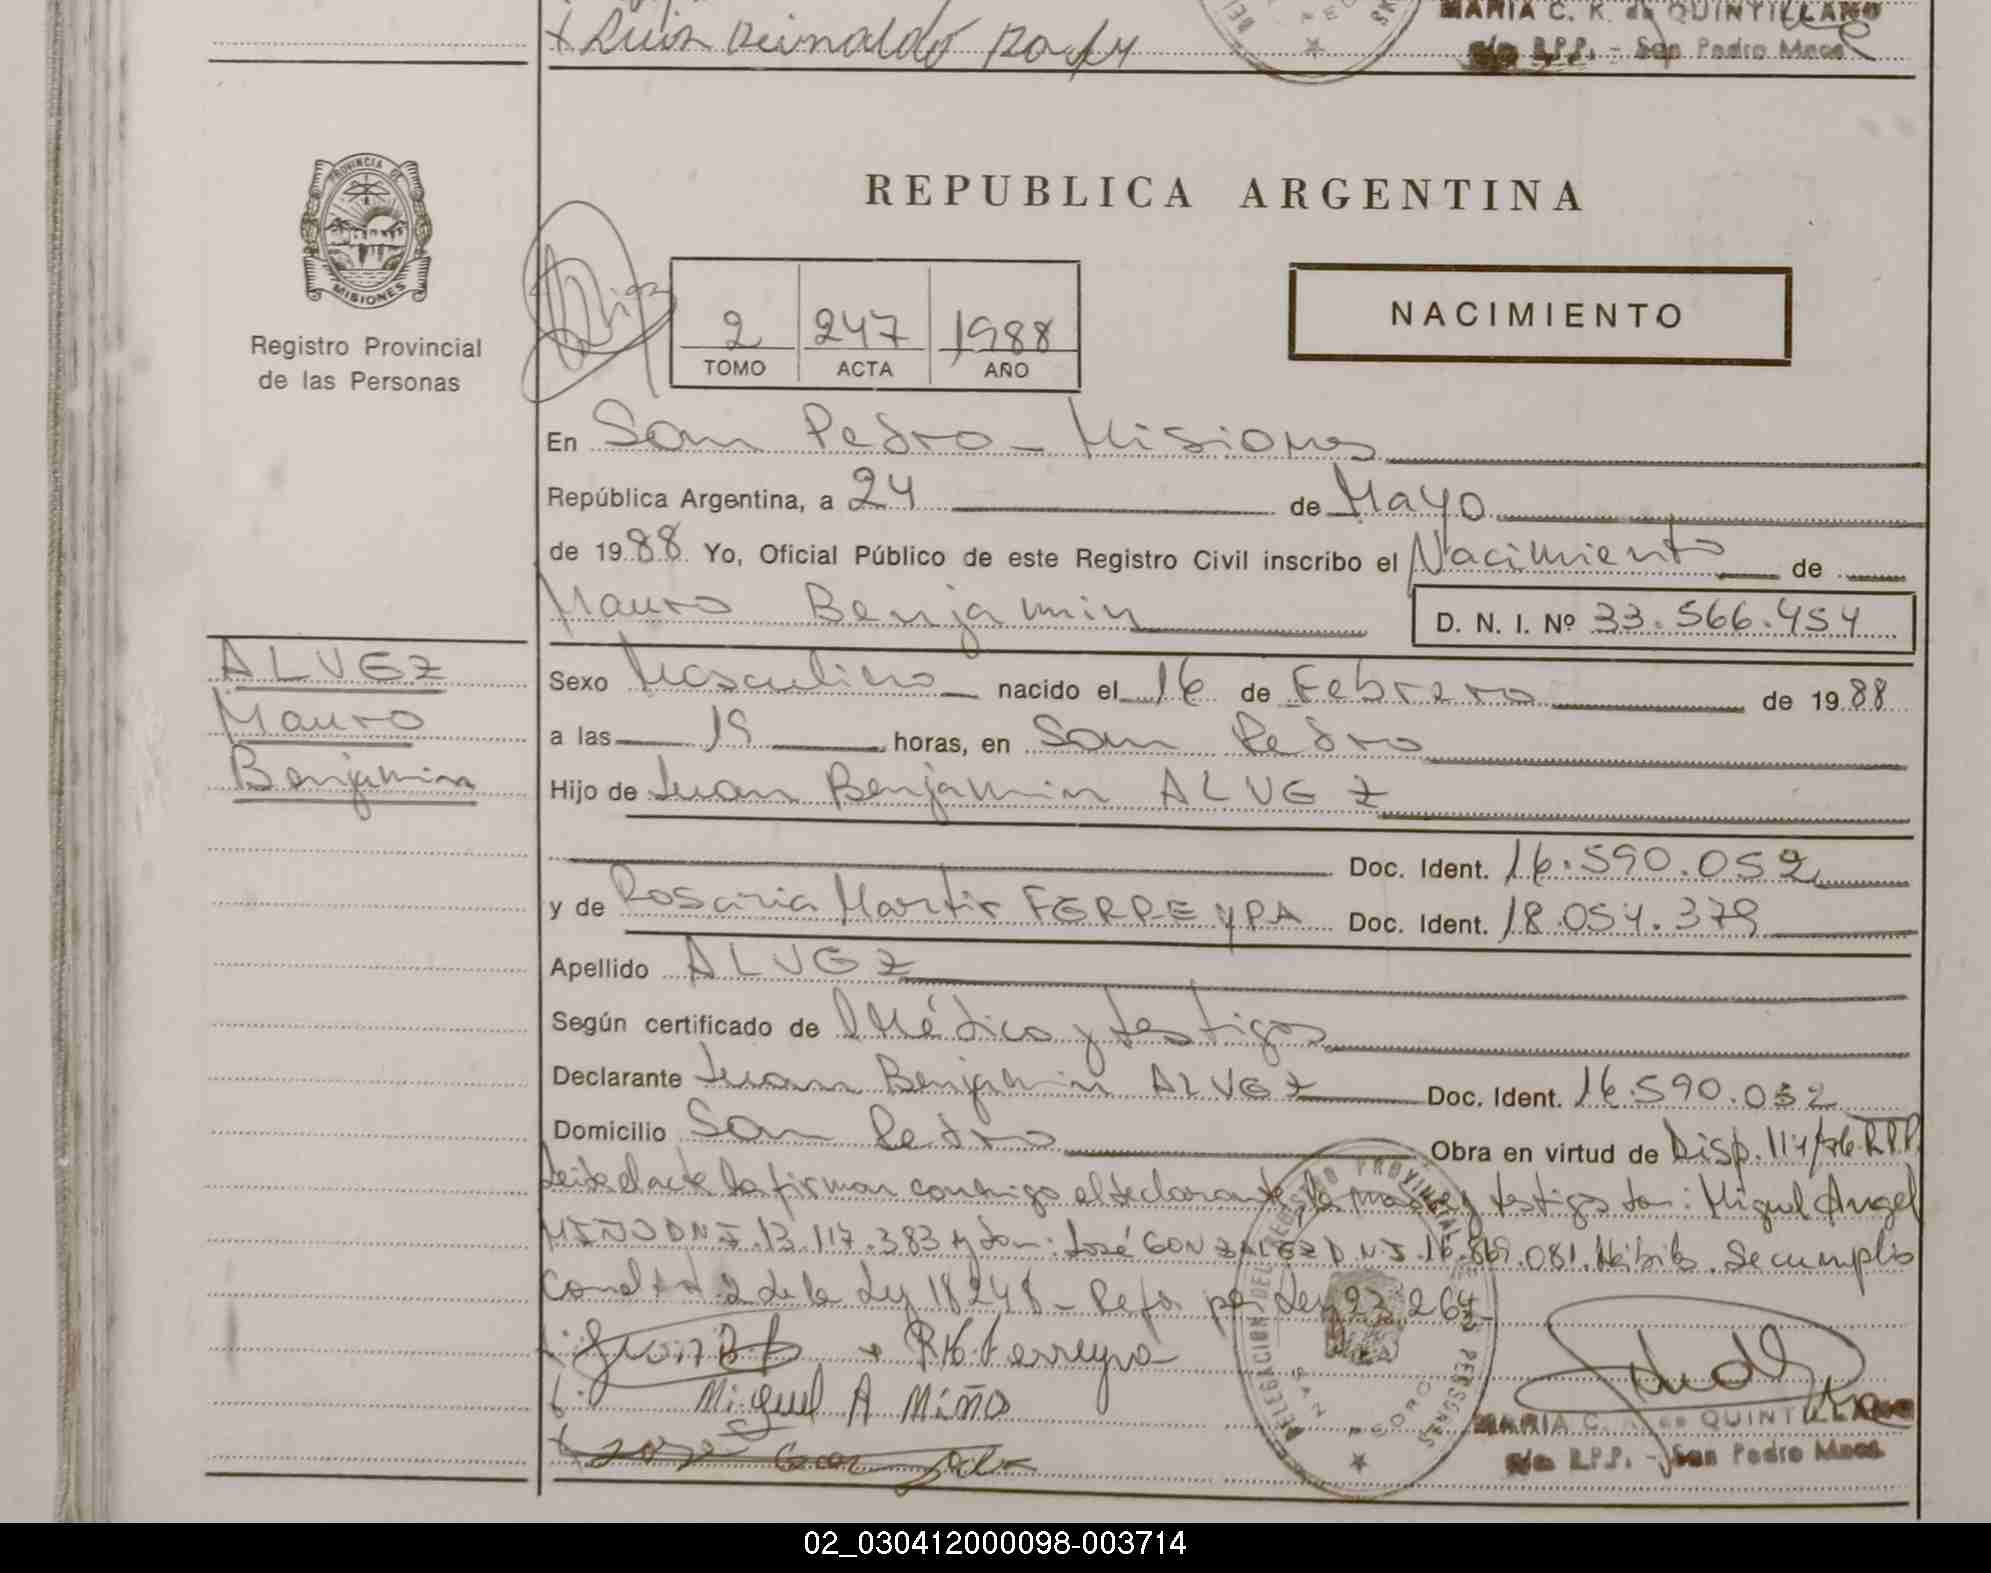 x Luis Reinaldo
MARIA C. K. de QUINTILLANO
R.P.P. - San Pedro Mnes
PROVINCIA DE MISIONES
REPUBLICA ARGENTINA
NACIMIENTO
2 247 1988
TOMO ACTA AÑO
Registro Provincial
de las Personas
En San Pedro - Misiones
República Argentina, a 24 de Mayo
de 1988 Yo, Oficial Público de este Registro Civil inscribo el Nacimiento de
Mauro Benjamin D. N. I. Nº 33.566.454
ALVEZ
Mauro
Benjamin
Sexo Masculino nacido el 16 de Febrero de 1988
a las 19 horas, en San Pedro
Hijo de Juan Benjamin ALVEZ
Doc. Ident. 16.590.052
y de Rosaria Martir FERREYRA Doc. Ident. 18.054.379
Apellido ALVEZ
Según certificado de Médico y testigos
Declarante Juan Benjamin ALVEZ Doc. Ident. 16.590.052
Domicilio San Pedro Obra en virtud de Disp. 117/76 R.P.P.
Leida el acta la firman conmigo el declarante, la madre y testigos don: Miguel Angel
MIÑO D.N.I. 13.117.383 y don: José GONZALEZ D.N.I. 16.869.081. Hábiles. Se cumplio
con el Art 2 de la Ley 18248 - Refor. por Ley 23.264
x R M Ferreyra
Miguel A Miño
x Jose Gonzalez
DELEGACION DEL REGISTRO PROVINCIAL DE PERSONAS
SAN PEDRO
MARIA C. K. de QUINTILLANO
R.P.P. - San Pedro Mnes.
02_030412000098-003714